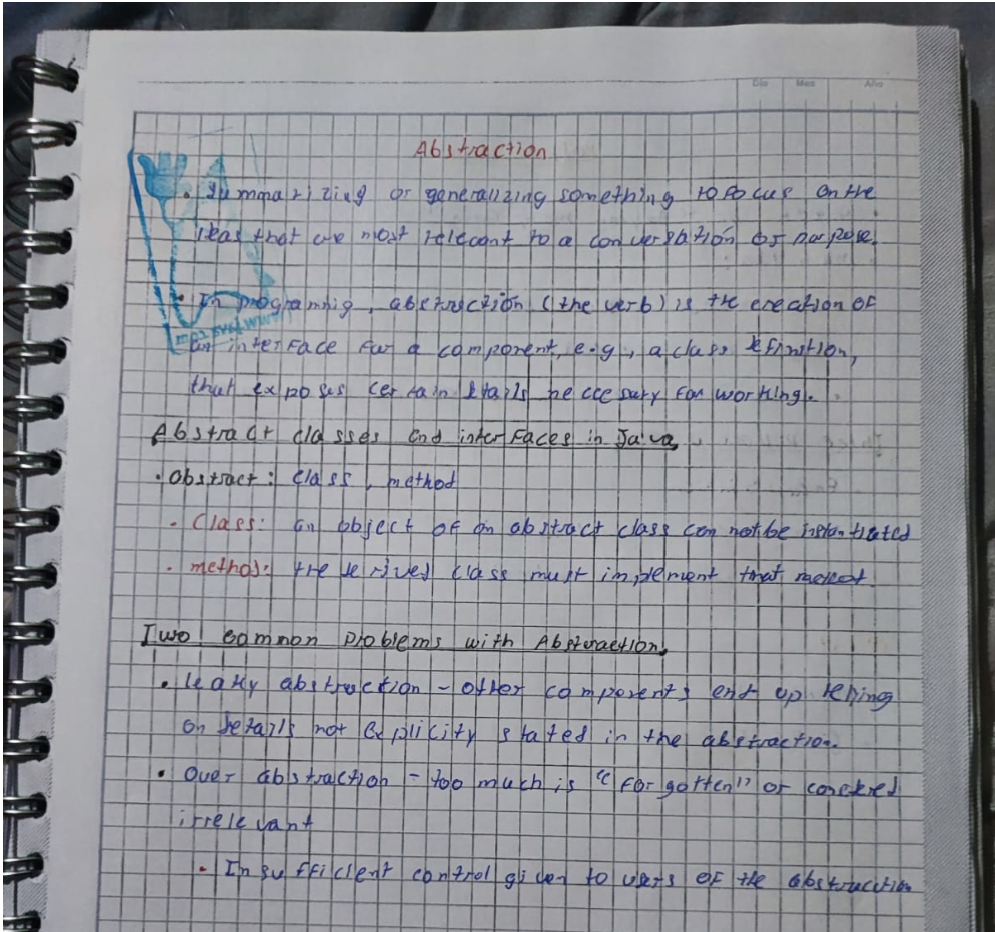 Dia Mes Año
Abstraction
• Summarizing or generalizing something to focus on the
ideas that are most relevant to a conversation or purpose.
• In programmig, abstraction (the verb) is the creation of
an interface for a component, e.g., a class definition,
that exposes certain details neccesary for working.
Abstract classes and interfaces in Java
• Abstract: class, method
• Class: an object of an abstract class can not be instantiated
• method: the derived class must implement that method.
Two common problems with Abstraction.
• leaky abstraction - other components end up relying
on details not explicity stated in the abstraction.
• Over abstraction - too much is "forgotten" or
irrelevant
• Insufficient control given to users of the abstraction